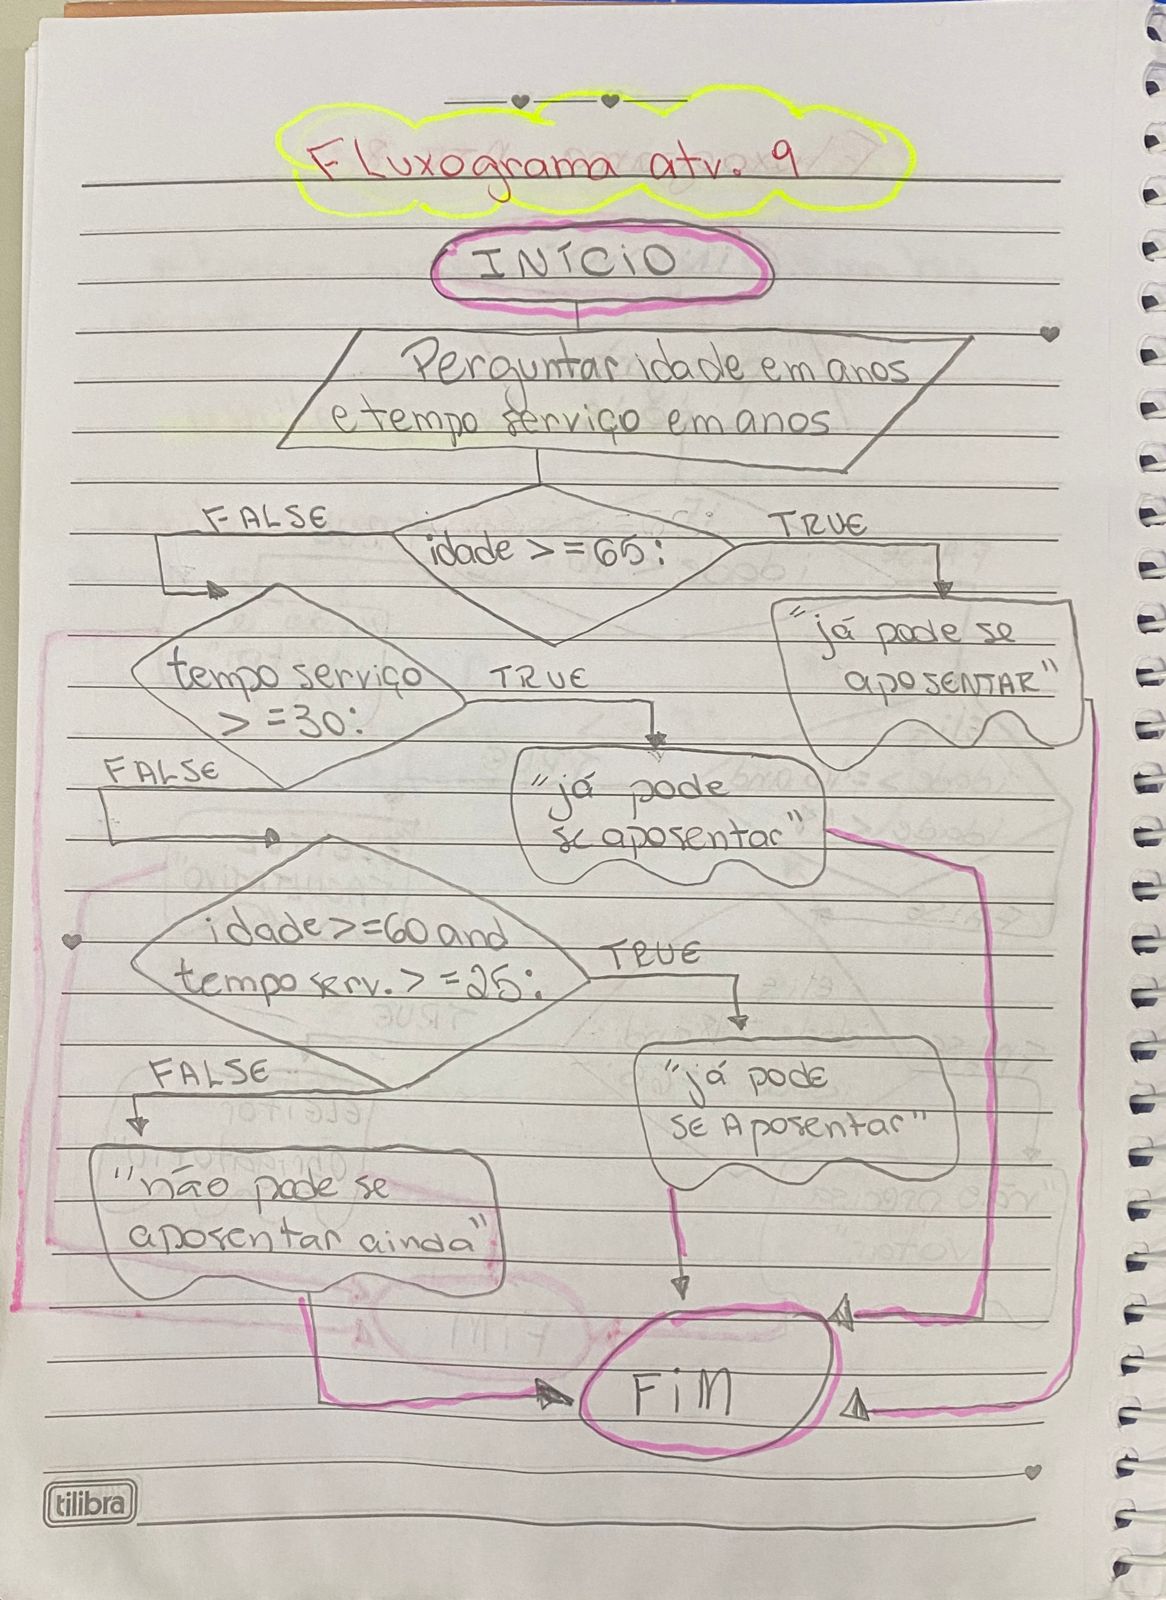 Fluxograma atv. 9
INÍCIO
Perguntar idade em anos
e tempo serviço em anos
FALSE
idade >=65:
TRUE
"já pode se
aposentar"
tempo serviço
>=30:
TRUE
FALSE
"já pode
se aposentar"
idade >=60 and
tempo serv. >=25:
TRUE
FALSE
"já pode
se aposentar"
"não pode se
aposentar ainda"
FIM
tilibra